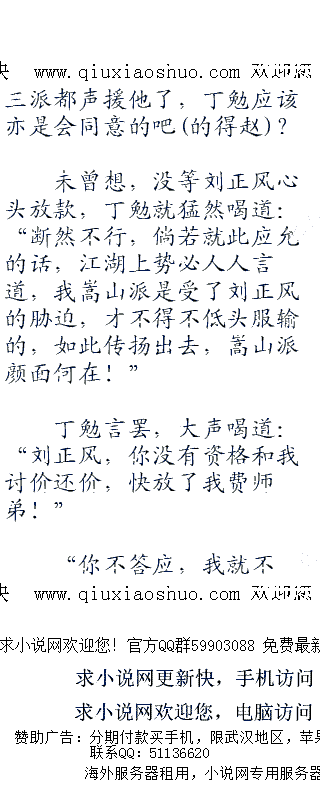 快 www.qiuxiaoshuo.com 欢迎您
三派都声援他了，丁勉应该
亦是会同意的吧(的得赵)？
未曾想，没等刘正风心
头放款，丁勉就猛然喝道：
“断然不行，倘若就此应允
的话，江湖上势必人人言
道，我嵩山派是受了刘正风
的胁迫，才不得不低头服输
的，如此传扬出去，嵩山派
颜面何在！”
丁勉言罢，大声喝道：
“刘正风，你没有资格和我
讨价还价，快放了我费师
弟！”
“你不答应，我就不
快 www.qiuxiaoshuo.com 欢迎您
求小说网欢迎您！官方QQ群59903088 免费最新
求小说网更新快，手机访问
求小说网欢迎您，电脑访问
赞助广告：分期付款买手机，限武汉地区，苹果
联系QQ：51136620
海外服务器租用，小说网专用服务器